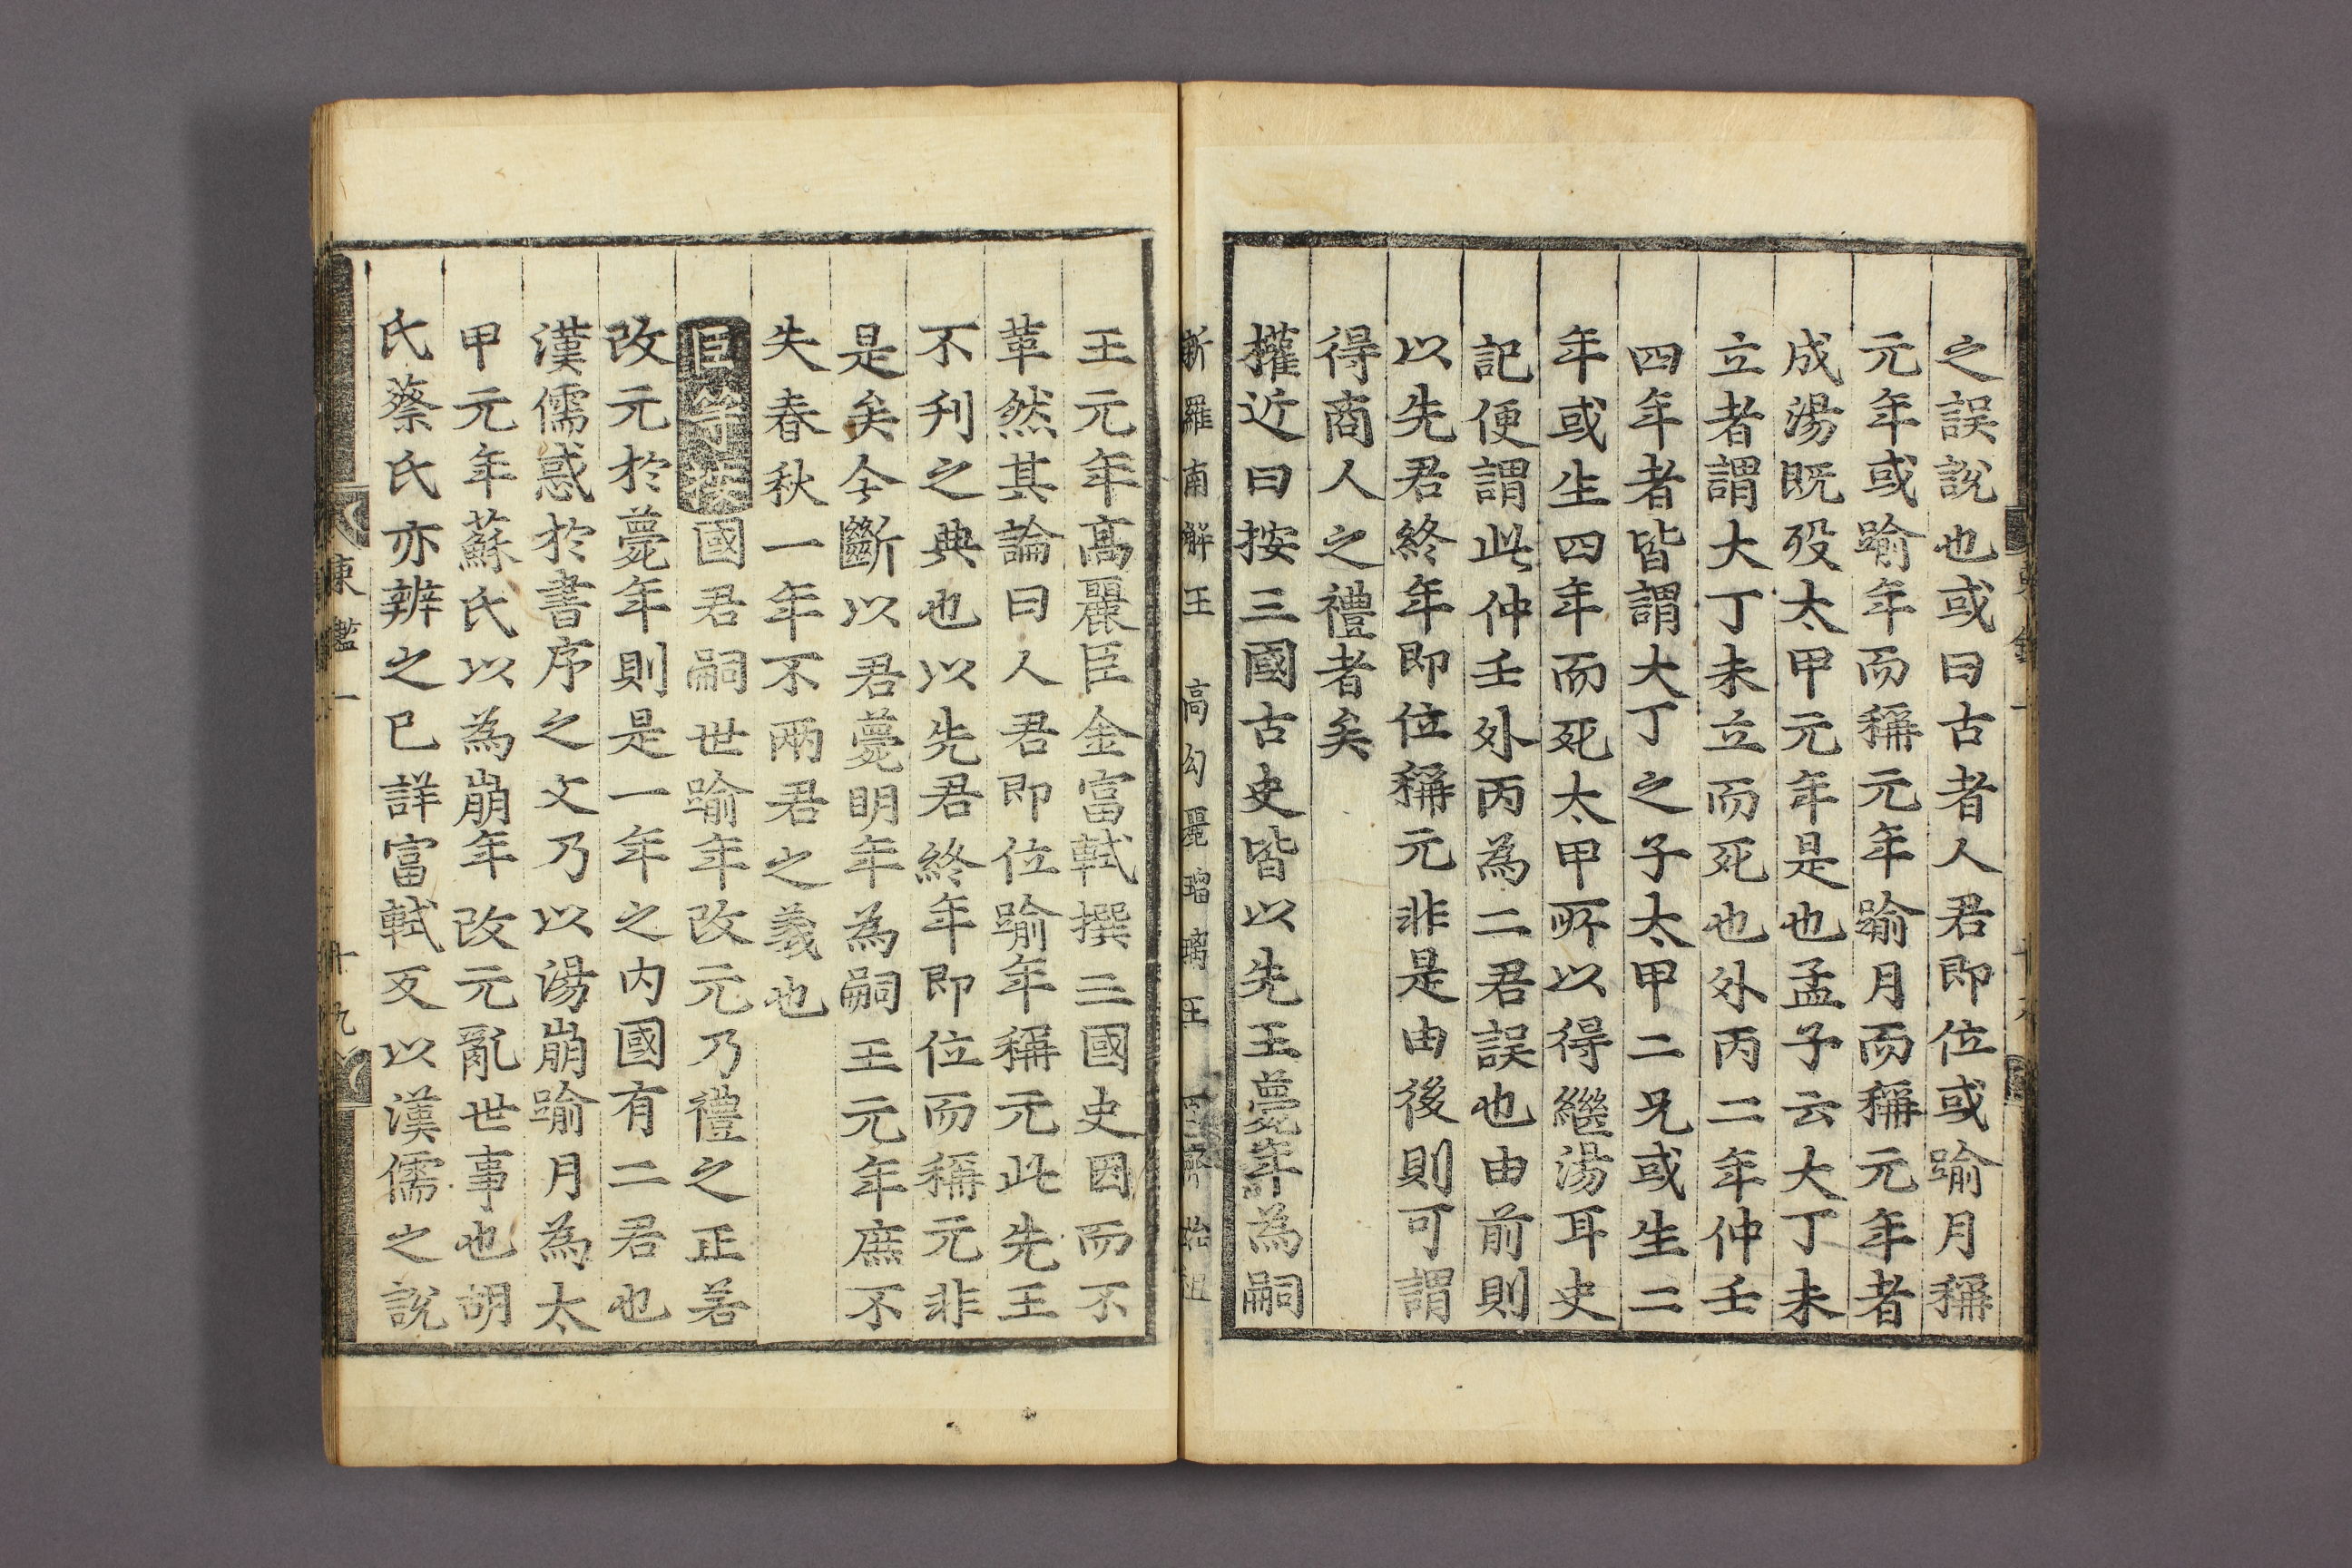 之誤說也或曰古者人君即位或踰月稱
元年或踰年而稱元年踰月而稱元年者
成湯旣歿太甲元年是也孟子云大丁未
立者謂大丁未立而死也外丙二年仲壬
四年者皆謂大丁之子太甲二兄或生二
年或生四年而死太甲所以得繼湯耳史
記便謂此仲壬外丙為二君誤也由前則
以先君終年即位稱元非是由後則可謂
得商人之禮者矣
權近曰按三國古史皆以先王薨年為嗣
新羅南解王 高勾麗瑠璃王 百濟始祖
王元年高麗臣金富軾撰三國史因而不
革然其論曰人君即位踰年稱元此先王
不刋之典也以先君終年即位而稱元非
是矣今斷以君薨明年為嗣王元年庶不
失春秋一年不兩君之義也
臣等按國君嗣世踰年改元乃禮之正若
改元於薨年則是一年之内國有二君也
漢儒惑於書序之文乃以湯崩踰月為太
甲元年蘇氏以為崩年改元亂世事也胡
氏蔡氏亦辨之已詳富軾又以漢儒之說
東鑑一 十九